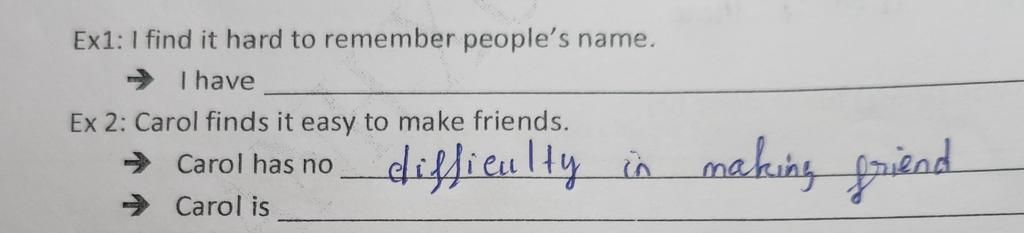 Ex1: I find it hard to remember people's name.
➔ I have
Ex 2: Carol finds it easy to make friends.
➔ Carol has no difficulty in making friend
➔ Carol is